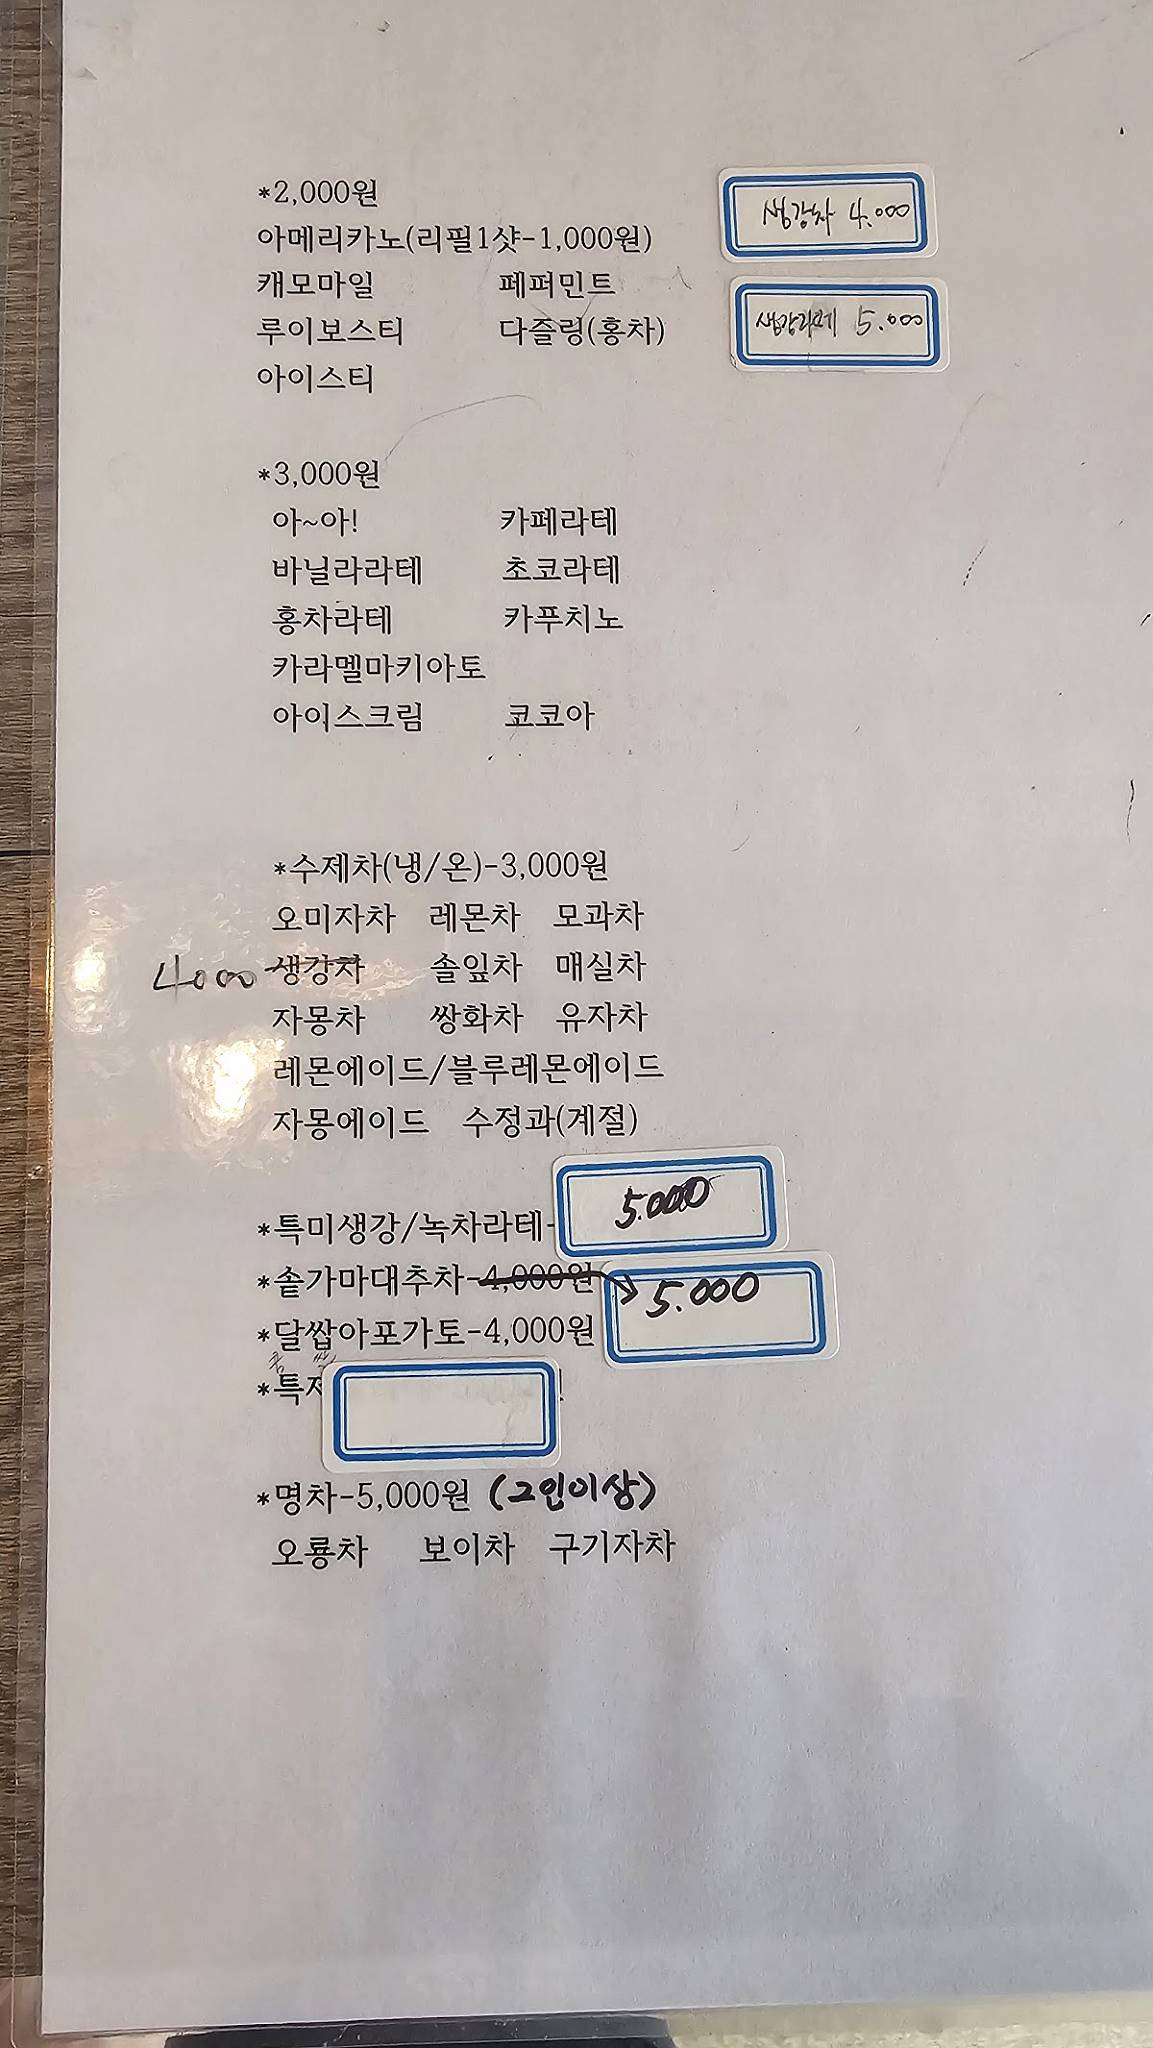 *2,000원
생강차 4.000
아메리카노(리필1샷-1,000원)
캐모마일 페퍼민트
생강라떼 5.000
루이보스티 다즐링(홍차)
아이스티
*3,000원
아~아! 카페라테
바닐라라테 초코라테
홍차라테 카푸치노
카라멜마키아토
아이스크림 코코아
*수제차(냉/온)-3,000원
오미자차 레몬차 모과차
4000 생강차 솔잎차 매실차
자몽차 쌍화차 유자차
레몬에이드/블루레몬에이드
자몽에이드 수정과(계절)
*특미생강/녹차라테- 5.000
*솥가마대추차-4,000원 5.000
*달쌉아포가토-4,000원
*특
*명차-5,000원 (2인이상)
오룡차 보이차 구기자차